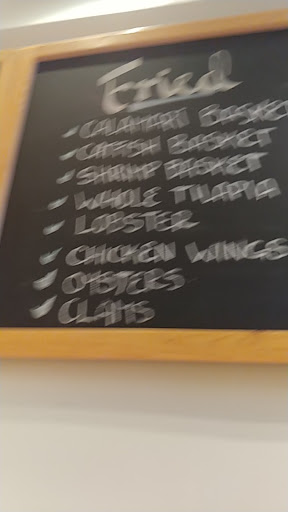 Fried
✓ CALAMARI BASKET
✓ CATFISH BASKET
✓ SHRIMP BASKET
✓ WHOLE TILAPIA
✓ LOBSTER
✓ CHICKEN WINGS
✓ OYSTERS
✓ CLAMS